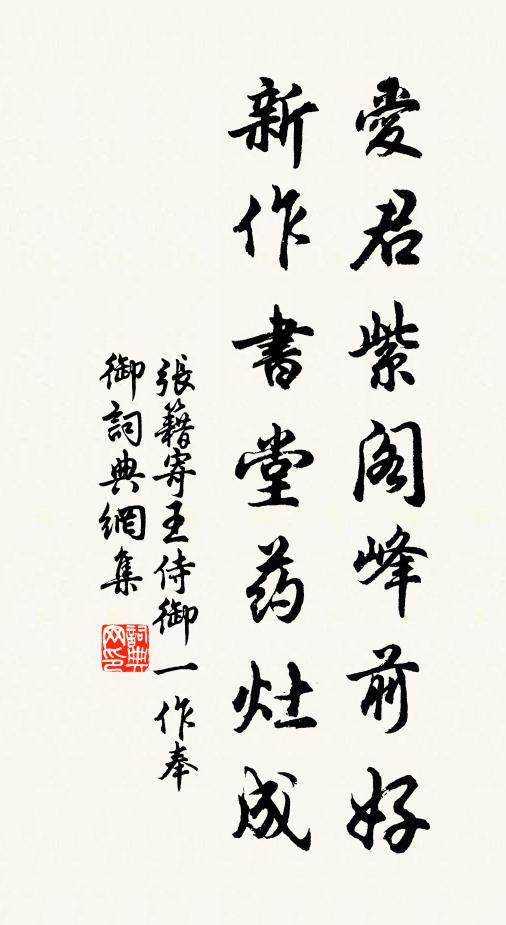 愛君紫阁峰前好
新作書堂药灶成
張籍寄王侍御一作奉
御詞典網集
詞典网印